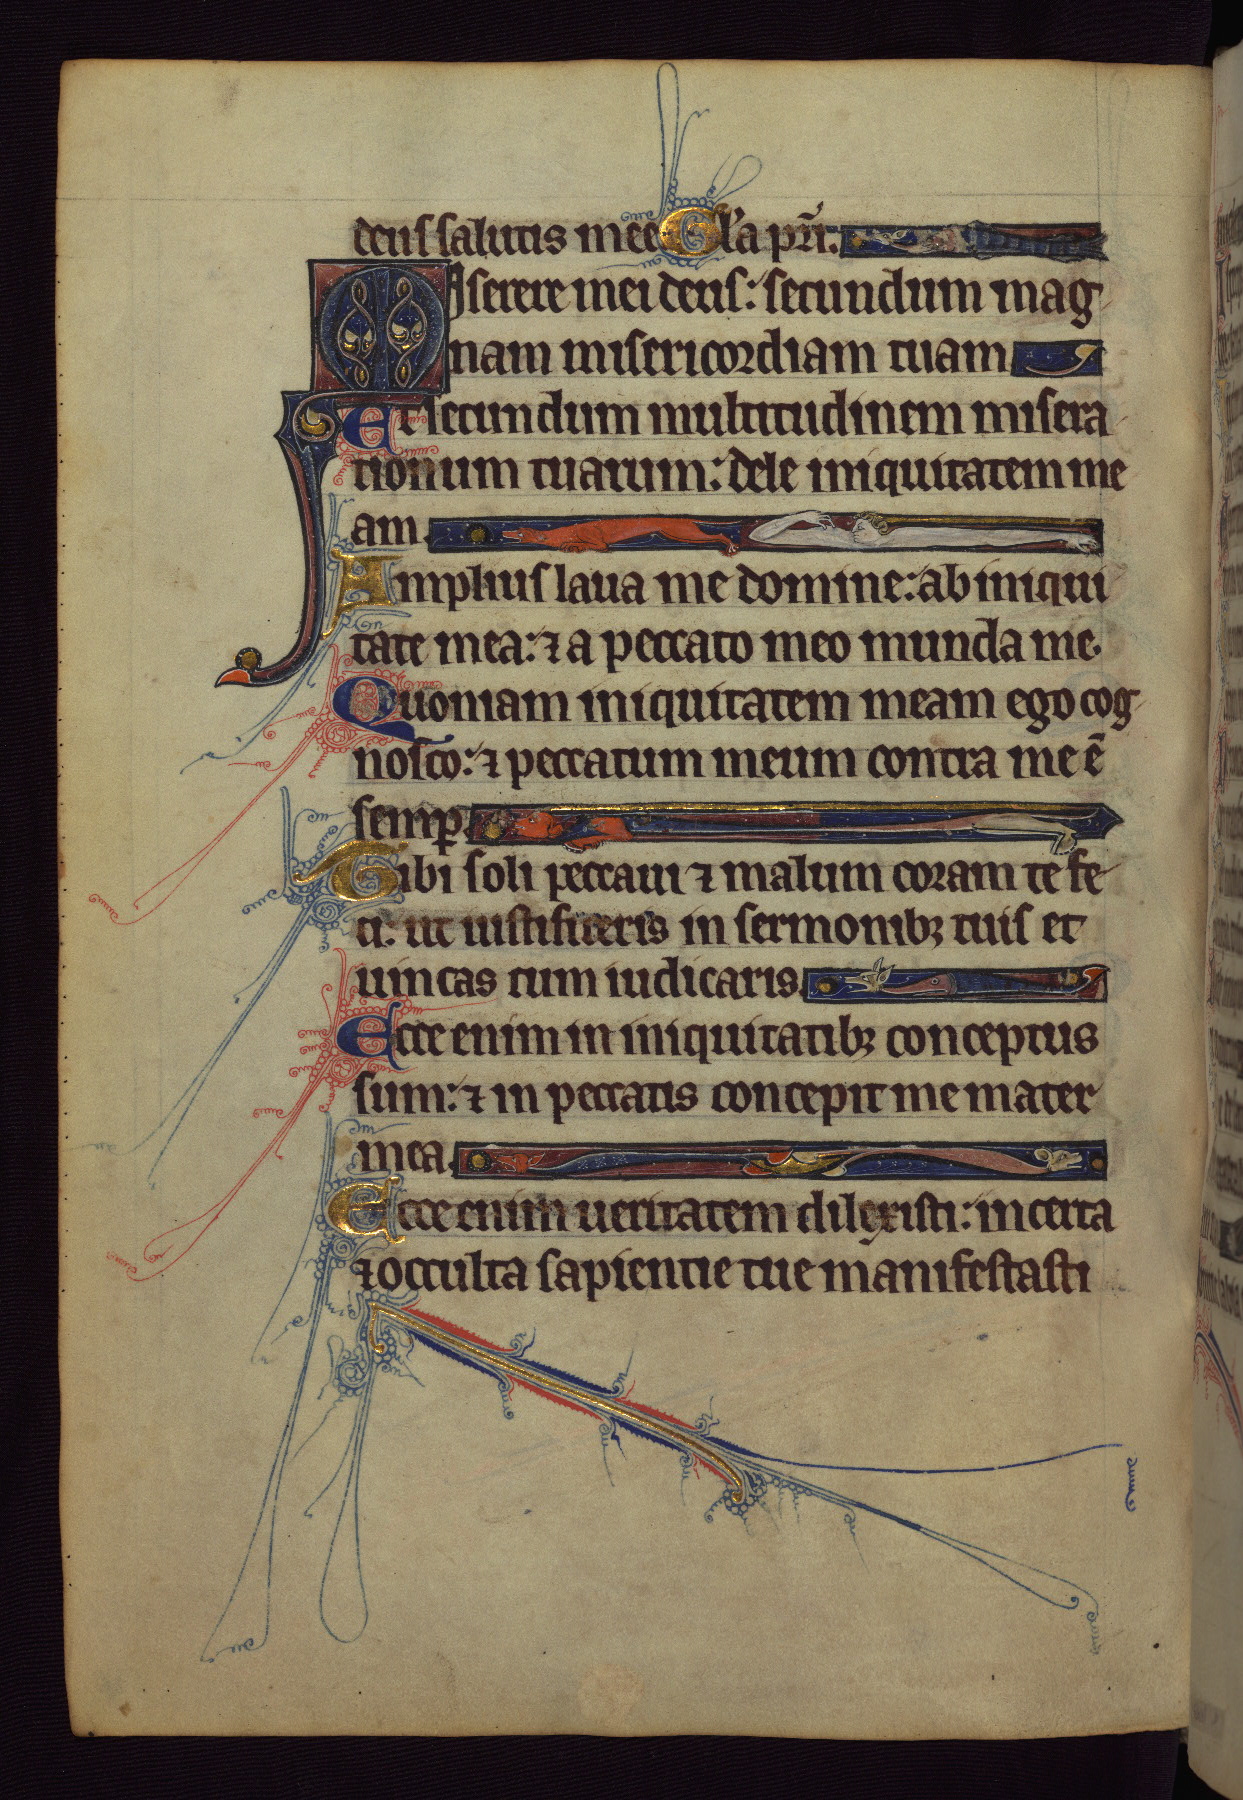 deus salutis mee Gl'a pr̄i.
Miserere mei deus: secundum mag
nam misericordiam tuam
Et secundum multitudinem misera
tionum tuarum: dele iniquitatem me
am.
Amplius laua me domine: ab iniqui
tate mea: ⁊ a peccato meo munda me.
Quoniam iniquitatem meam ego cog
nosco: ⁊ peccatum meum contra me ē
semꝑ.
Tibi soli peccaui ⁊ malum coram te fe
ci: ut iustificeris in sermonibꝫ tuis et
uincas cum iudicaris.
Ecce enim in iniquitatibꝫ conceptus
sum: ⁊ in peccatis concepit me mater
mea.
Ecce enim ueritatem dilexisti: incerta
⁊ occulta sapientie tue manifestasti